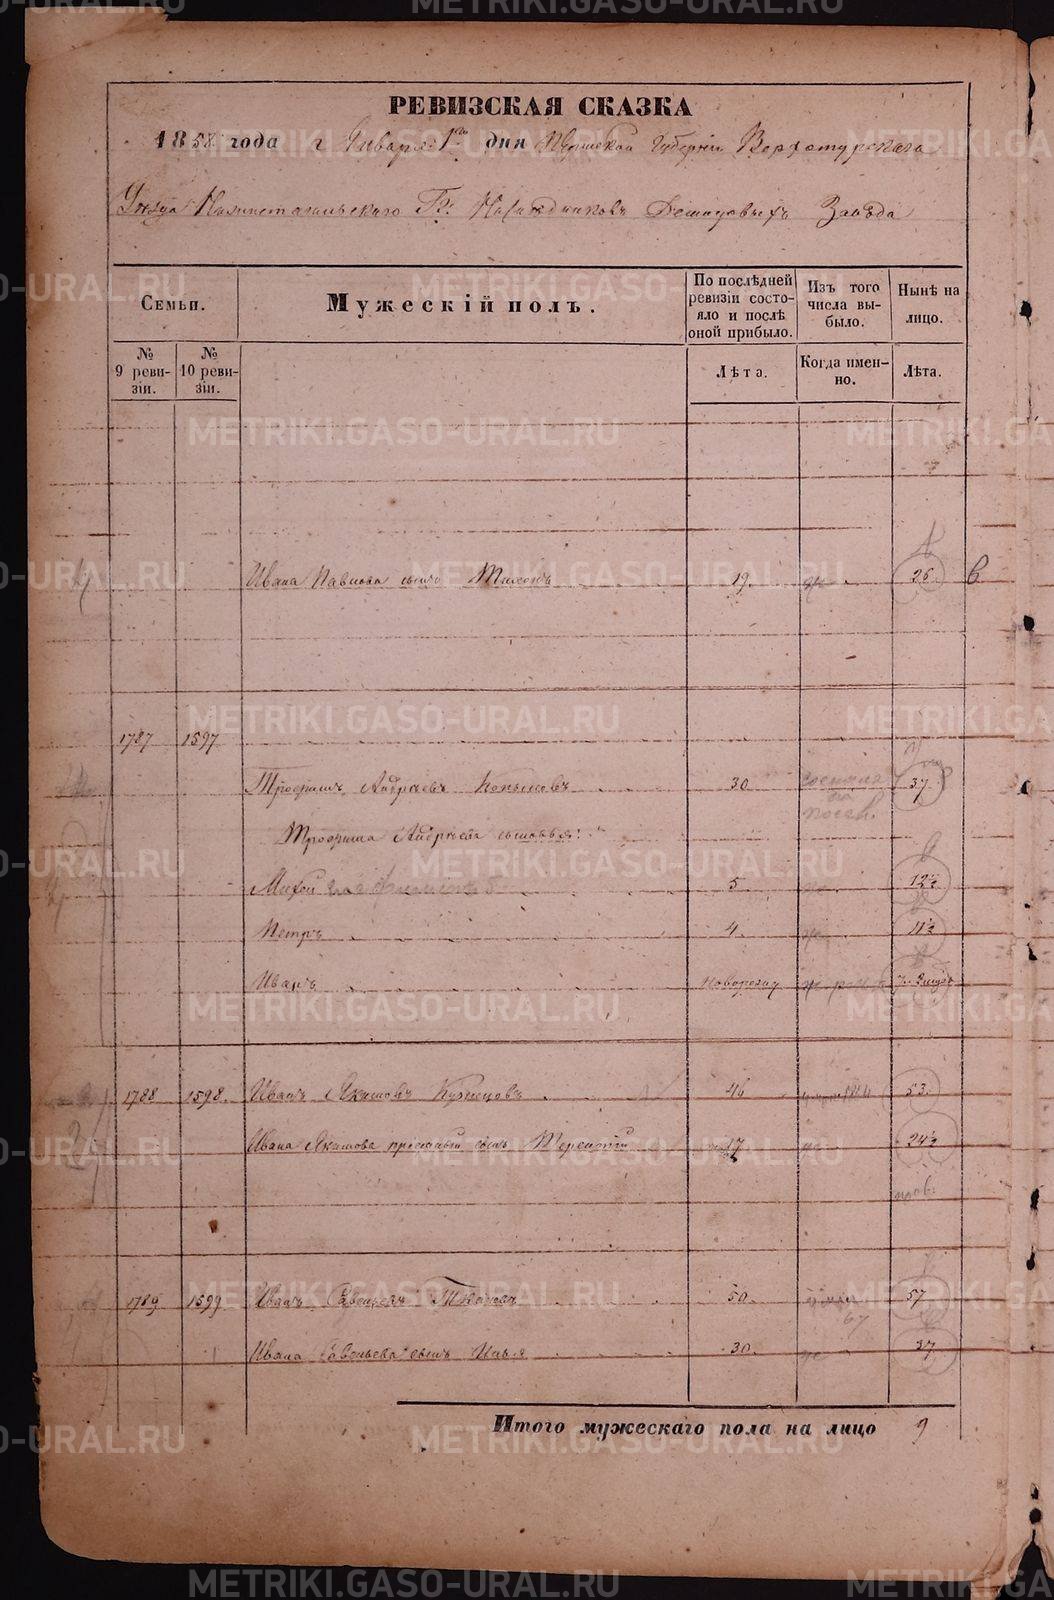 РЕВИЗСКАЯ СКАЗКА
1858 года г. Января 1го дня Пермской Губерніи Верхотурскаго
Уезда Нижнетагильскаго Гг. Наследниковъ Демидовыхъ Завода
Семьи.
Мужескій полъ.
По послѣдней ревизіи состояло и послѣ оной прибыло.
Изъ того числа выбыло.
Нынѣ на лицо.
№ 9 ревизіи.
№ 10 ревизіи.
Лѣта.
Когда именно.
Лѣта.
Ивана Павлова сынъ 19. 26. в
1787 1597
Трофимъ Андреевъ Копыловъ 30 37
Трофима Андреева сыновья:
Михей 5 12½
Петръ 4. 11½
Иванъ новорожд.
1788 1598. Иванъ Якимовъ Кузнецовъ 46 53.
Ивана Якимова пріемный сынъ Терентій 17 24½
1789 1599 Иванъ Савельевъ 50. 57
Ивана Савельева сынъ Илья 30. 37
Итого мужескаго пола на лицо 9
METRIKI.GASO-URAL.RU